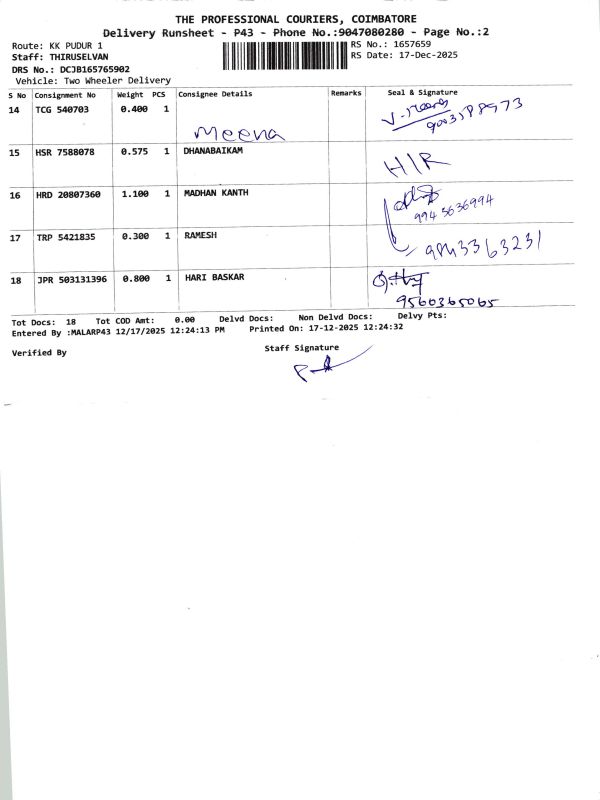 THE PROFESSIONAL COURIERS, COIMBATORE
Delivery Runsheet - P43 - Phone No.:9047080280 - Page No.:2
Route: KK PUDUR 1
RS No.: 1657659
Staff: THIRUSELVAN
RS Date: 17-Dec-2025
DRS No.: DCJB165765902
Vehicle: Two Wheeler Delivery
S No Consignment No Weight PCS Consignee Details Remarks Seal & Signature
14 TCG 540703 0.400 1
Meena
15 HSR 7588078 0.575 1 DHANABAIKAM
HIR
16 HRD 20807360 1.100 1 MADHAN KANTH
9943636994
17 TRP 5421835 0.300 1 RAMESH
18 JPR 503131396 0.800 1 HARI BASKAR
9560365065
Tot Docs: 18 Tot COD Amt: 0.00 Delvd Docs: Non Delvd Docs: Delvy Pts:
Entered By :MALARP43 12/17/2025 12:24:13 PM Printed On: 17-12-2025 12:24:32
Verified By
Staff Signature